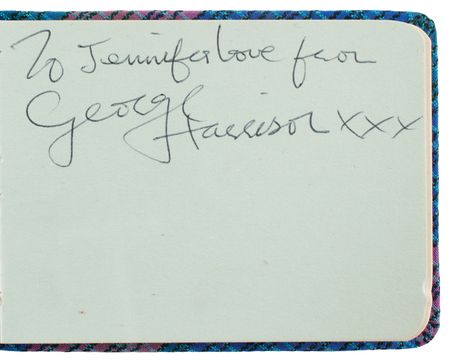 To Jennifer love from
George
Harrison xxx